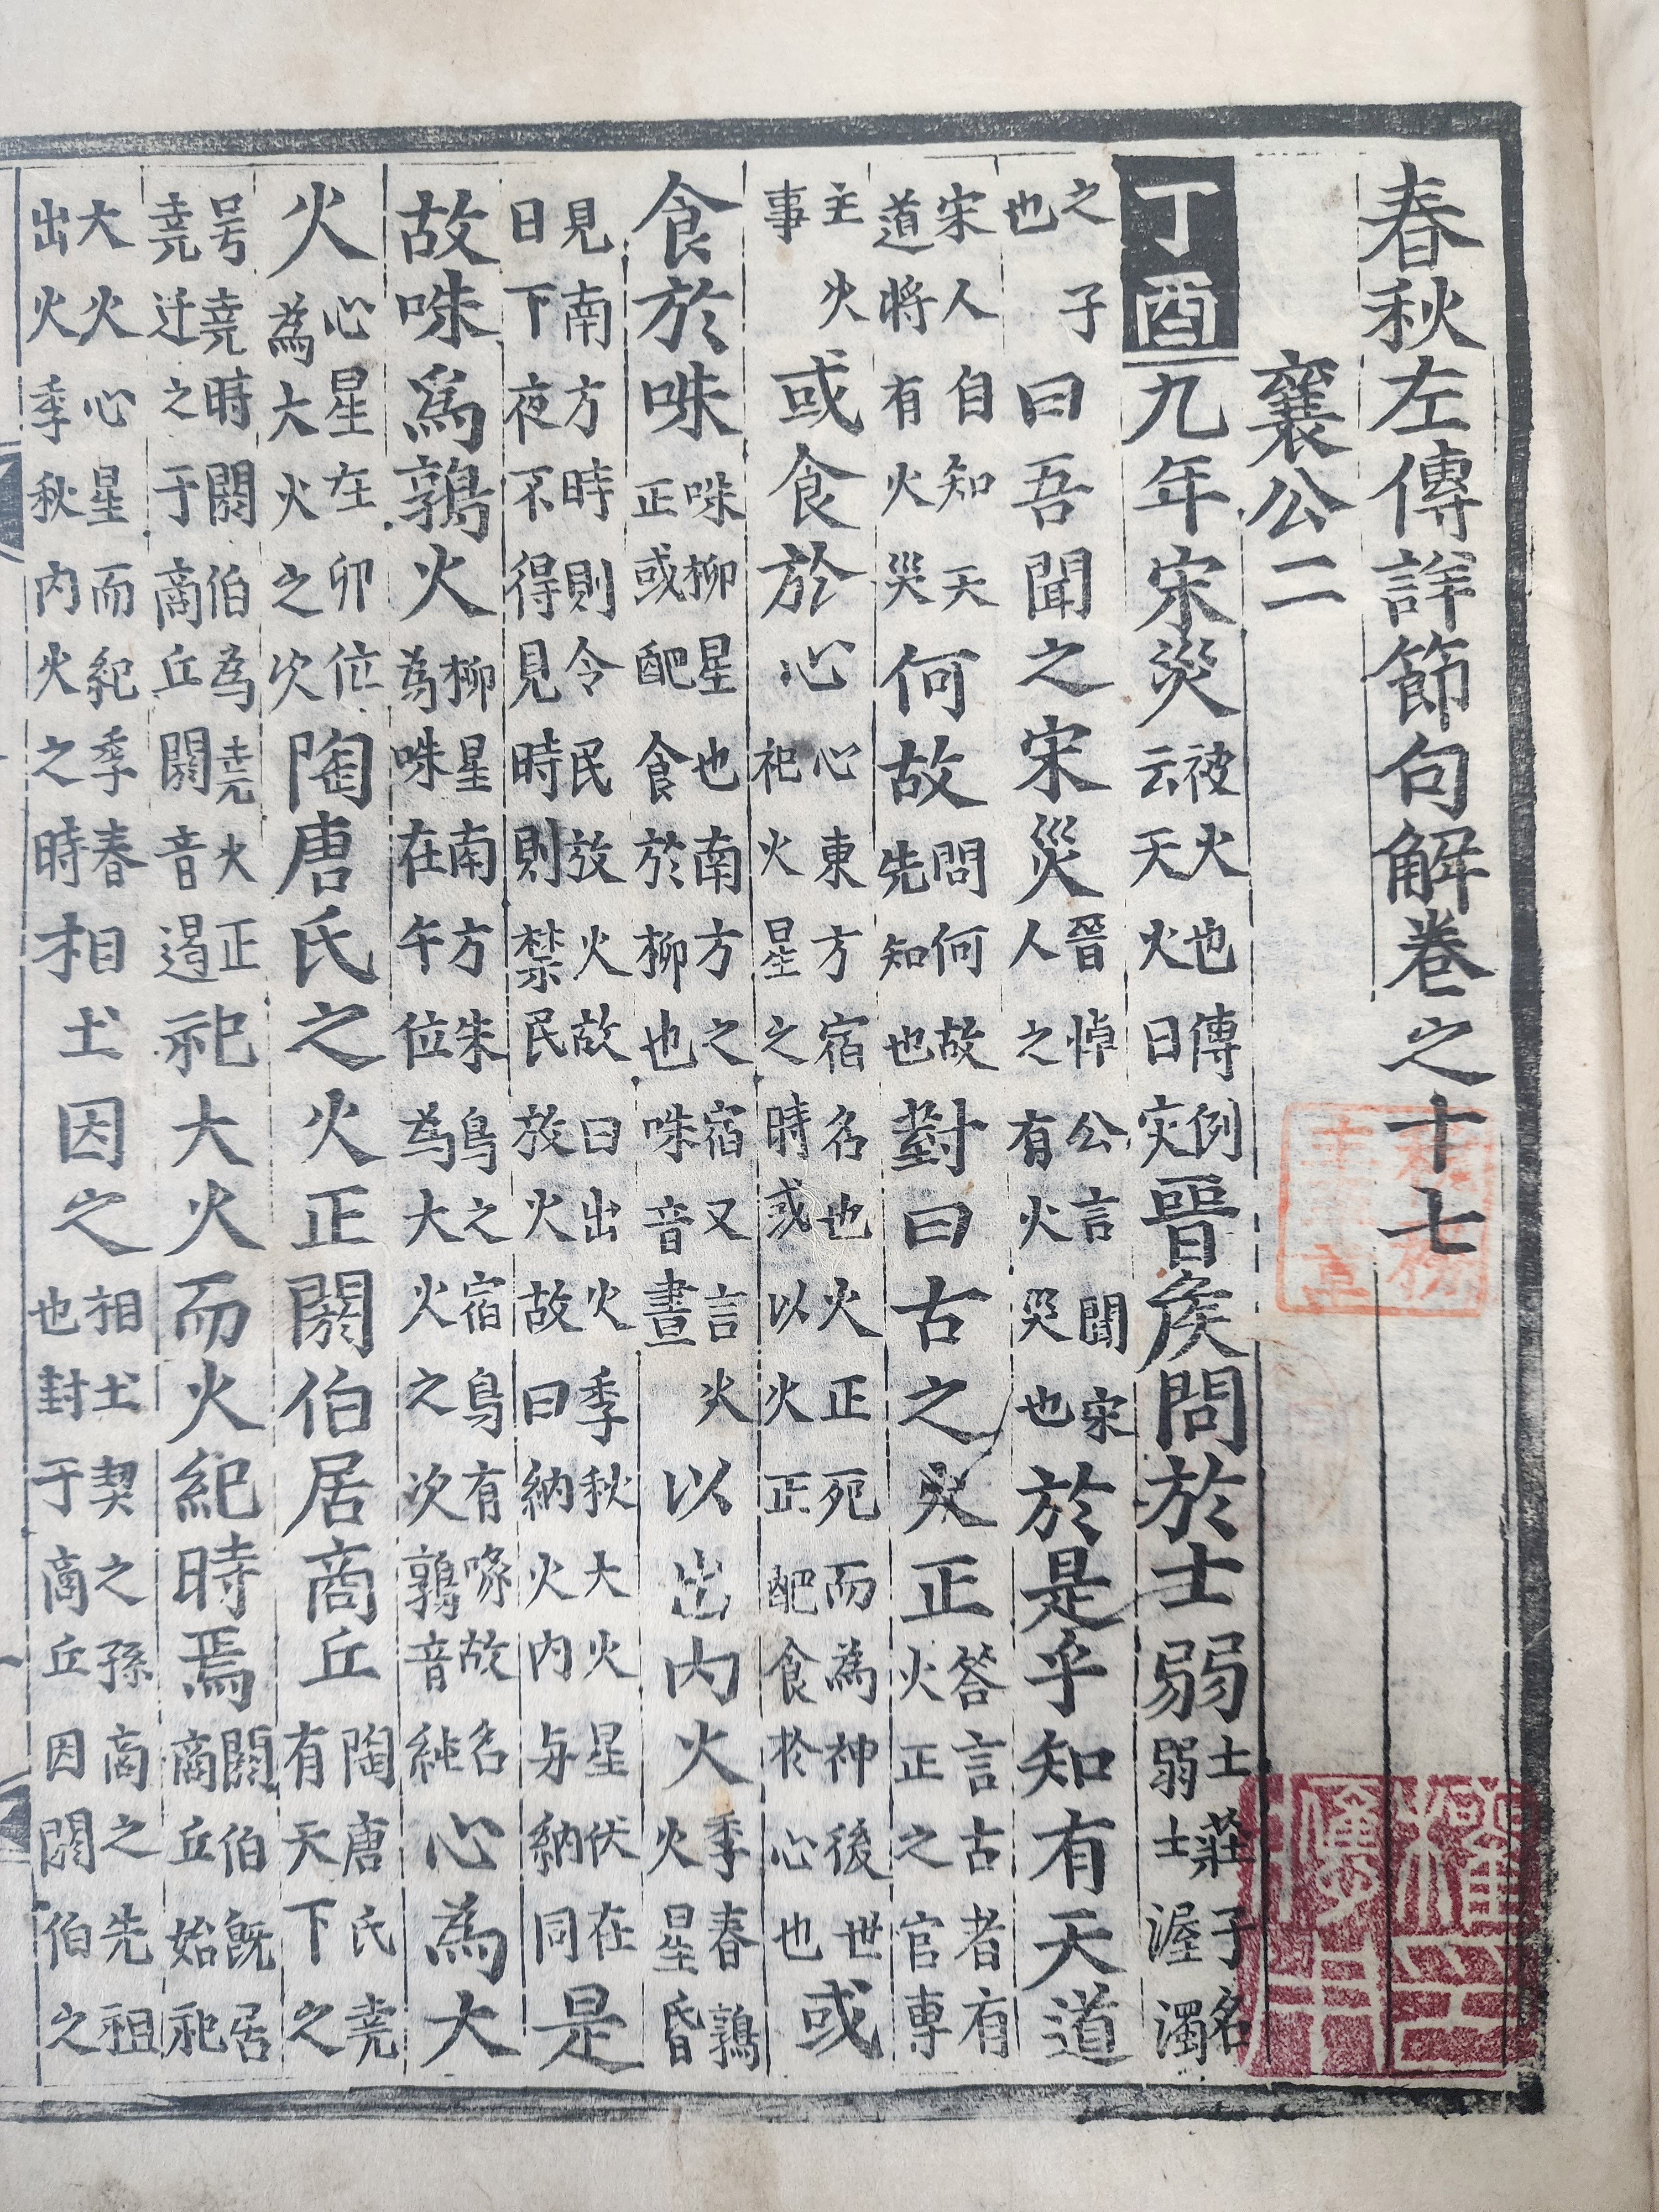 春秋左傳詳節句解卷之十七
襄公二
丁酉九年宋災被火也傳例云天火曰灾晉侯問於士弱士莊子名弱士渥濁
之子也曰吾聞之宋災晉悼公言聞宋人之有火災也於是乎知有天道
宋人自知天道將有火災何故問何故先知也對曰古之火正答言古者有火正之官專
主火事或食於心心東方宿名也火正死而為神後世祀火星之時或以火正配食於心也或
食於咮咮柳星也南方之宿又言火正或配食於柳也咮音晝以出内火季春鶉火星昏
見南方時則令民放火故曰出火季秋大火星伏在日下夜不得見時則禁民放火故曰納火内与納同是
故咮為鶉火柳星南方朱鳥之宿鳥有喙故名為咮在午位為大火之次鶉音純心為大
火心星在卯位為大火之次陶唐氏之火正閼伯居商丘陶唐氏堯有天下之
号堯時閼伯為堯火正堯迁之于商丘閼音遏祀大火而火紀時焉閼伯既居商丘始祀
大火心星而紀季春出火季秋内火之時相土因之相土契之孫商之先祖也封于商丘因閼伯之